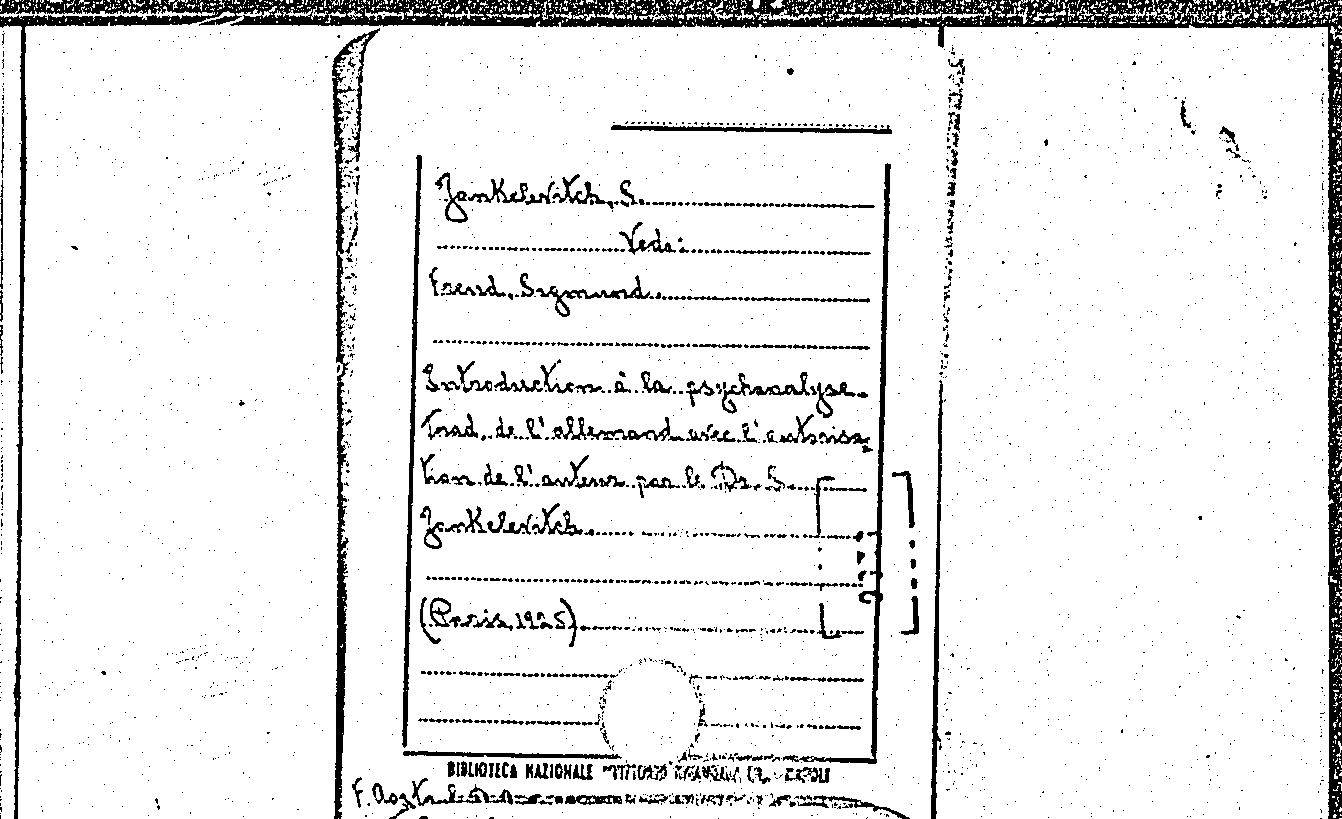 Jankelevitch, S.
Vedi:
Freud, Sigmund.
Introduction à la psychanalyse.
Trad. de l'allemand avec l'autorisa-
tion de l'auteur par le Dr. S.
Jankelevitch.
(Paris, 1925)
BIBLIOTECA NAZIONALE "VITTORIO EMANUELE III" - NAPOLI